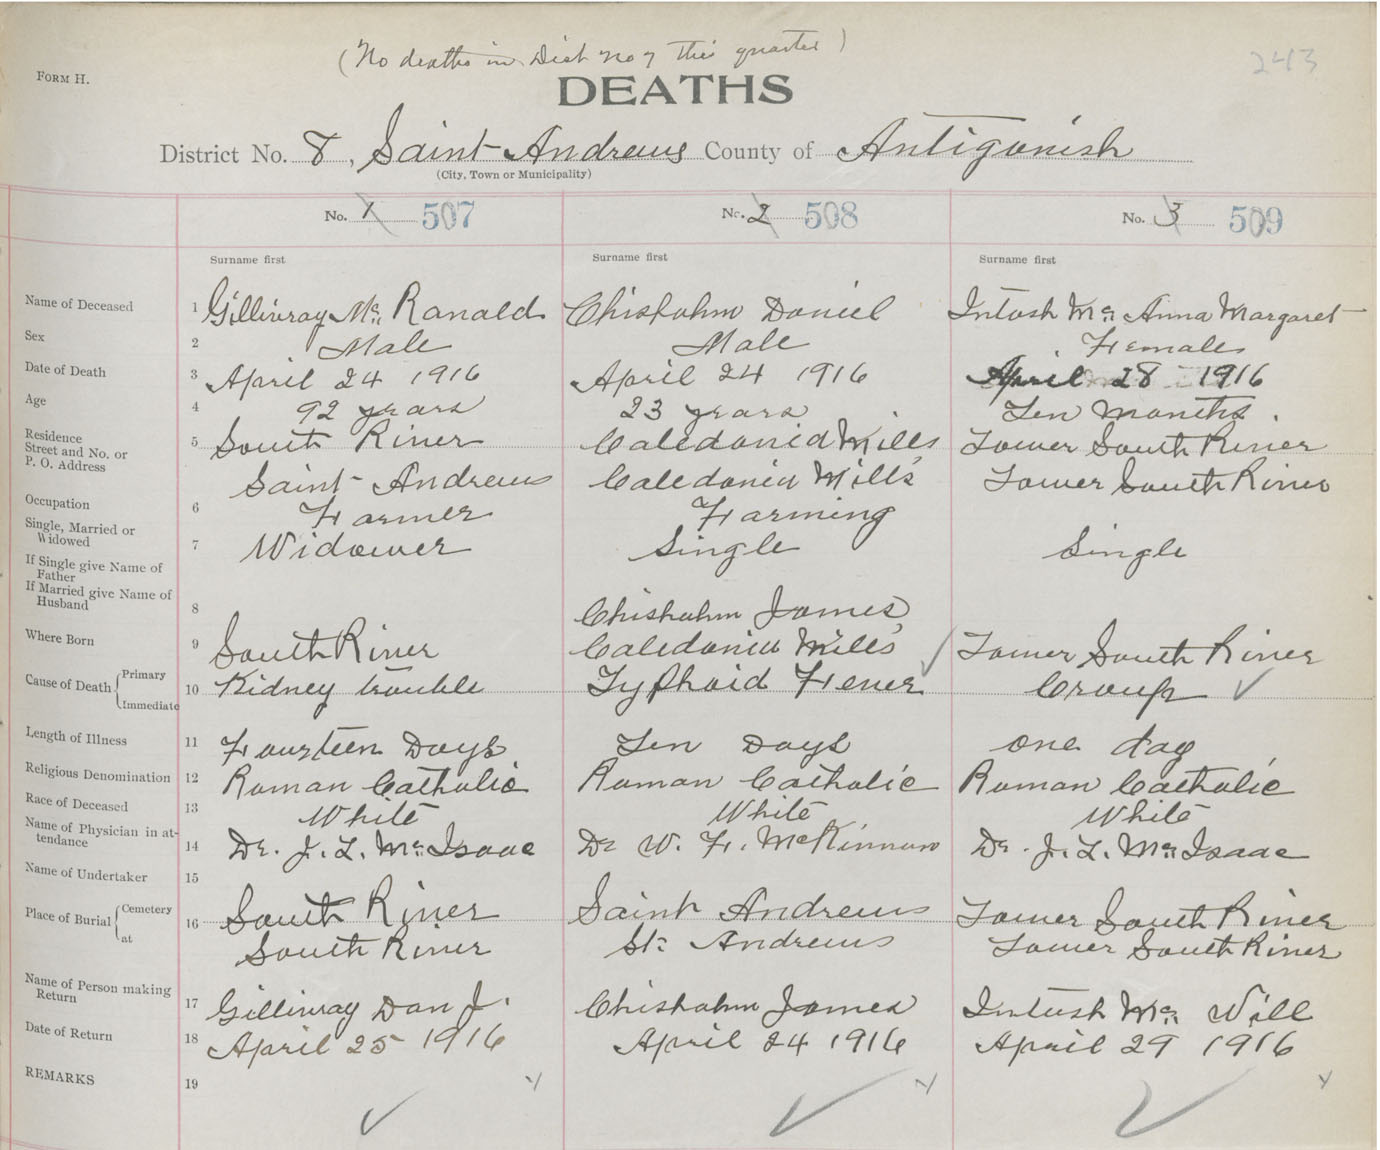 (No deaths in Dist no 7 this quarter)
243
FORM H.
DEATHS
District No. 8, Saint Andrews County of Antigonish
(City, Town or Municipality)
No. 1 507 No. 2 508 No. 3 509
Surname first Surname first Surname first
Name of Deceased 1 Gillivray Mc Ranald Chisholm Daniel Intosh Mc Anna Margaret
Sex 2 Male Male Female
Date of Death 3 April 24 1916 April 24 1916 April 28 1916
Age 4 92 years 23 years Ten Months.
Residence Street and No. or P. O. Address 5 South River Caledonia Mills Lower South River
Saint Andrews Caledonia Mills Lower South River
Occupation 6 Farmer Farming
Single, Married or Widowed 7 Widower Single Single
If Single give Name of Father
If Married give Name of Husband 8 Chisholm James
Where Born 9 South River Caledonia Mills Lower South River
Cause of Death { Primary Immediate 10 Kidney trouble Typhoid Fever Croup
Length of Illness 11 Fourteen Days Ten Days one day
Religious Denomination 12 Roman Catholic Roman Catholic Roman Catholic
Race of Deceased 13 White White White
Name of Physician in attendance 14 Dr. J. L. McIsaac Dr W. F. McKinnon Dr. J. L. McIsaac
Name of Undertaker 15
Place of Burial { Cemetery 16 South River Saint Andrews Lower South River
at South River St. Andrews Lower South River
Name of Person making Return 17 Gillivray Dan J. Chisholm James Intosh Mc Will
Date of Return 18 April 25 1916 April 24 1916 April 29 1916
REMARKS 19